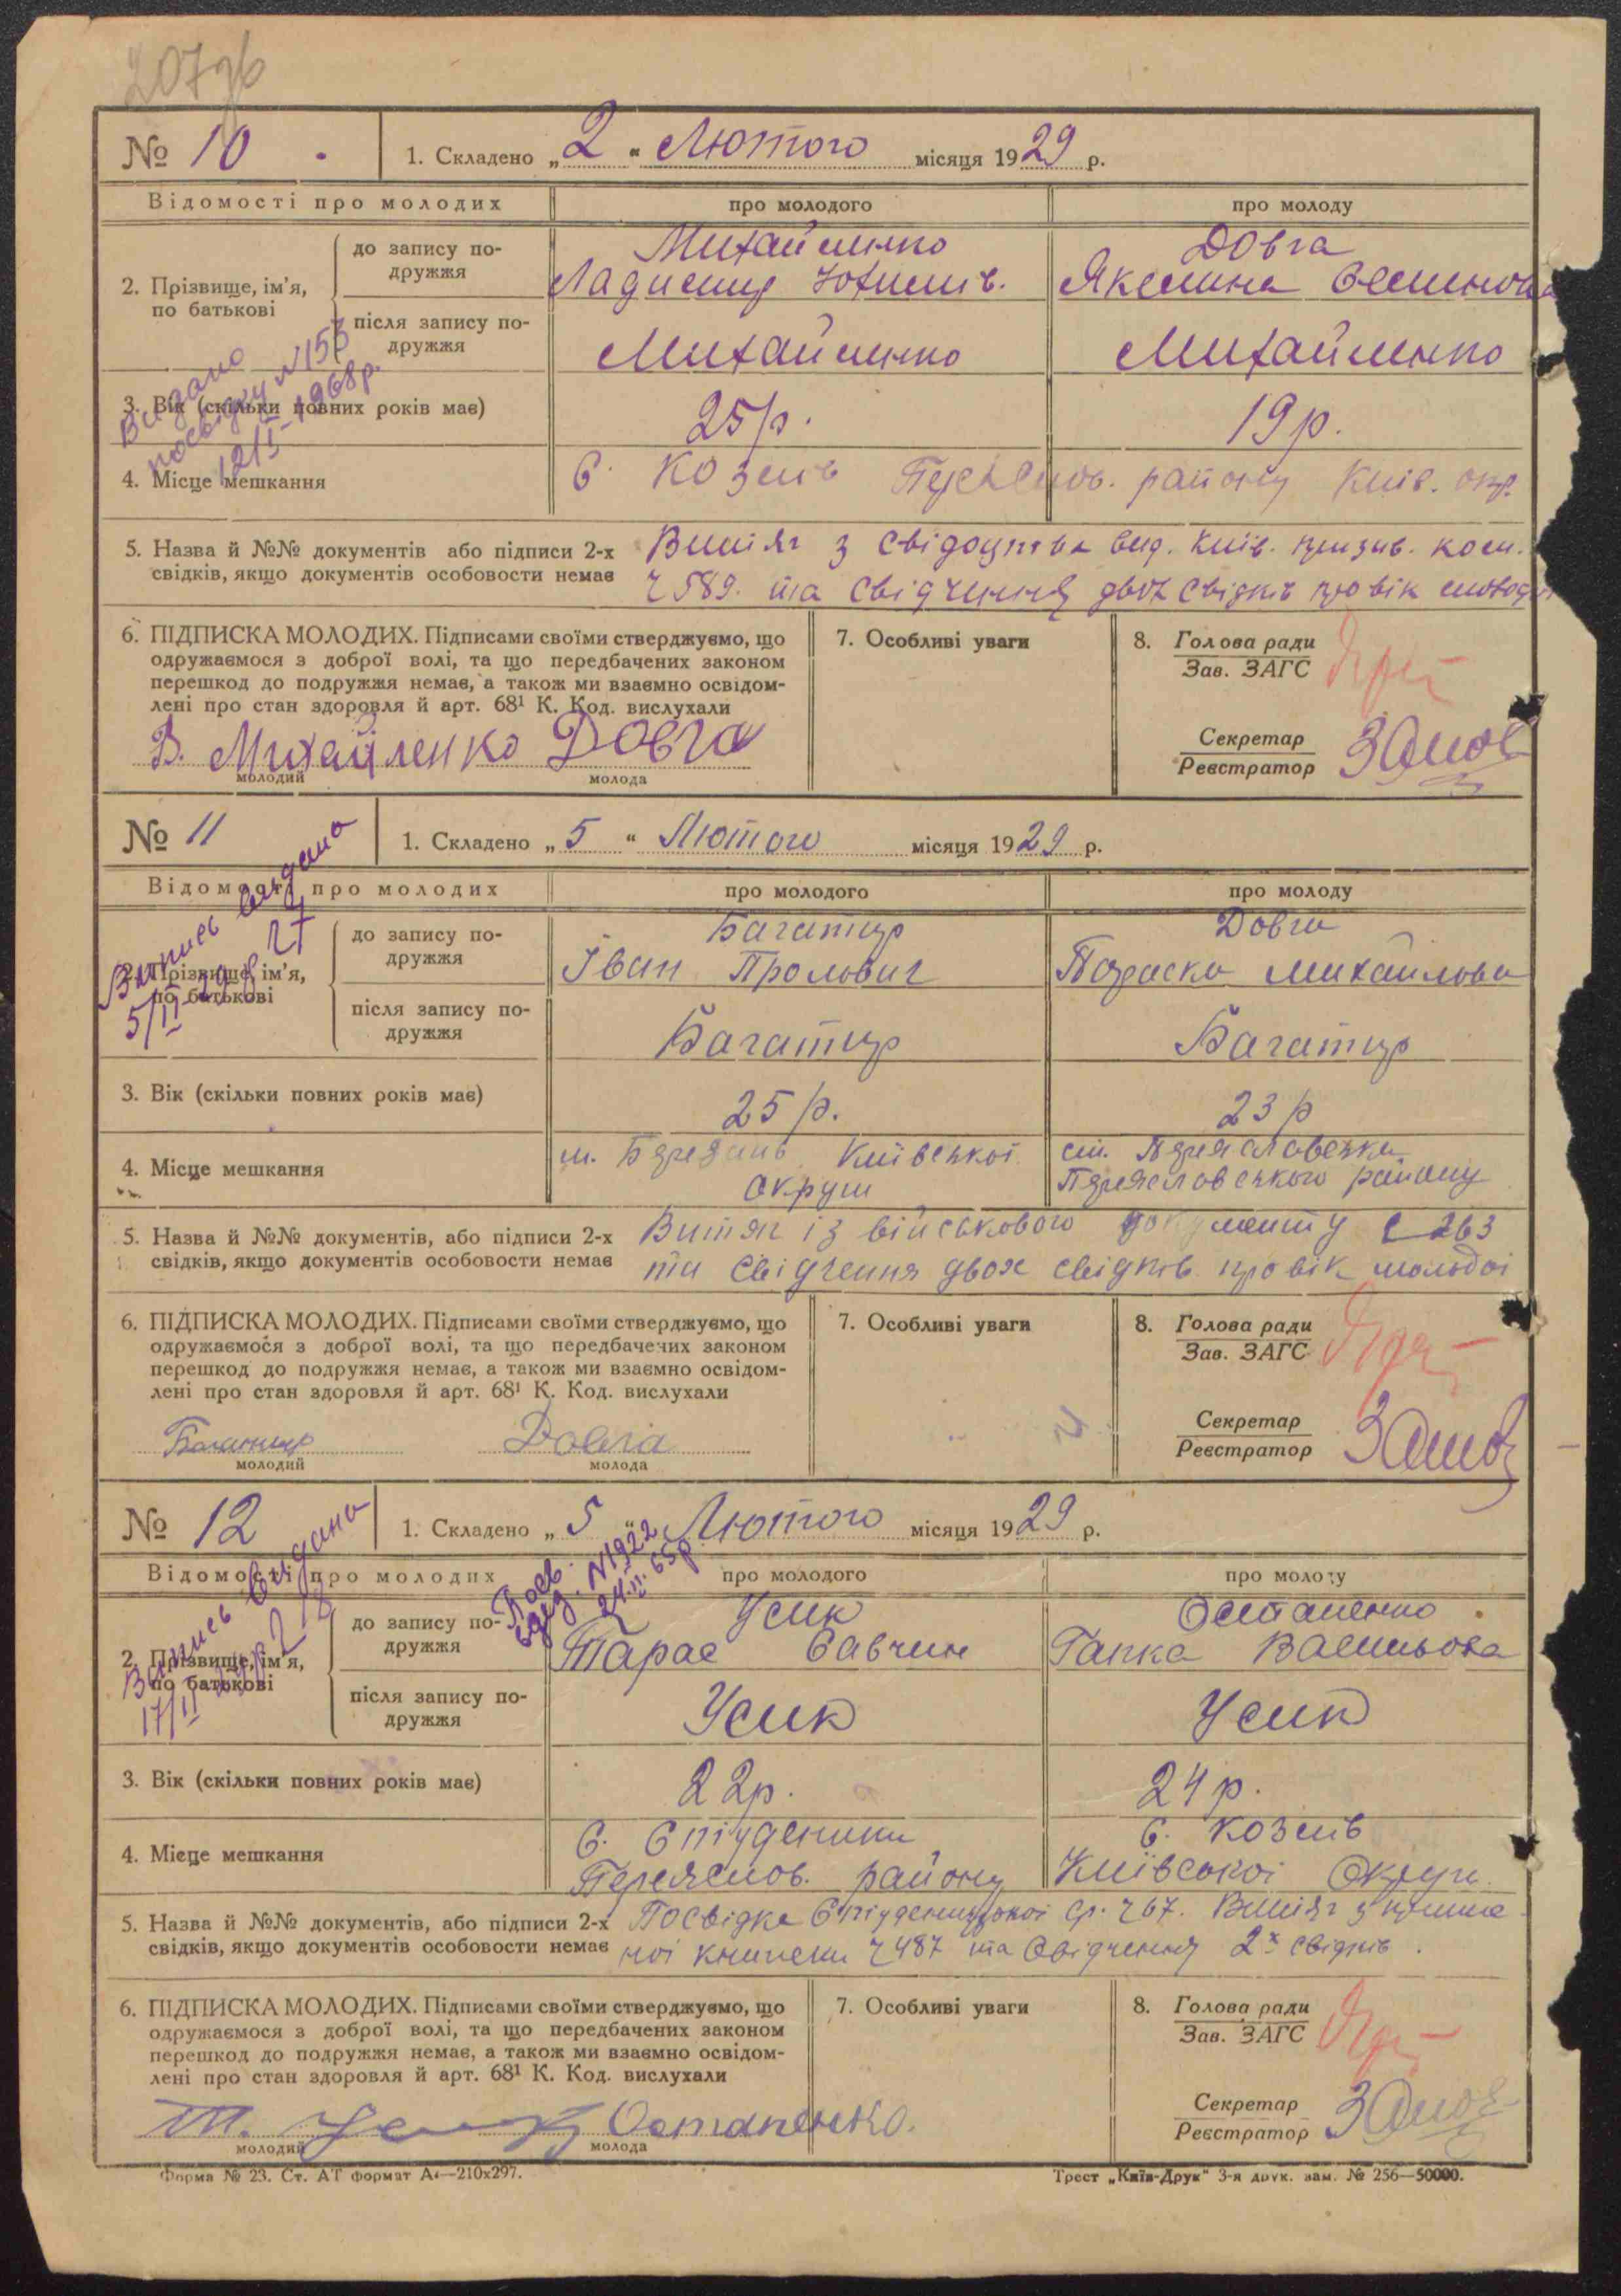 № 10
1. Складено „2“ Лютого місяця 1929 р.
Відомості про молодих
про молодого
про молоду
2. Прізвище, ім’я, по батькові
до запису подружжя
Михайленко
Довга
після запису подружжя
Михайленко
Михайленко
3. Вік (скільки повних років має)
25 р.
19 р.
Видано
посвідку №155
12/I-1968р.
4. Місце мешкання
С. Козлів район Київ. окр.
5. Назва й №№ документів або підписи 2-х
свідків, якщо документів особовости немає
Витяг з свідоцтва вид. Київ. призив. ком.
ч 589. та свідчення двох свідків про вік молодої
6. ПІДПИСКА МОЛОДИХ. Підписами своїми стверджуємо, що
одружаємося з доброї волі, та що передбачених законом
перешкод до подружжя немає, а також ми взаємно освідом-
лені про стан здоровля й арт. 68¹ К. Код. вислухали
В. Михайленко Довга
молодий
молода
7. Особливі уваги
8. Голова ради
Зав. ЗАГС
Секретар
Реєстратор
№ 11
1. Складено „5“ Лютого місяця 1929 р.
Відомості про молодих
про молодого
про молоду
Выпись видана
5/II
2. Прізвище, ім’я,
по батькові
до запису по-
дружжя
Багатир
Іван
Довга
Параска Михайлова
після запису по-
дружжя
Багатир
Багатир
3. Вік (скільки повних років має)
25 р.
23 р
4. Місце мешкання
м. Березань Київської
округи
Переяславського району
5. Назва й №№ документів, або підписи 2-х
свідків, якщо документів особовости немає
Витяг із військового документу 263
та свідчення двох свідків про вік молодої
6. ПІДПИСКА МОЛОДИХ. Підписами своїми стверджуємо, що
одружаємося з доброї волі, та що передбачених законом
перешкод до подружжя немає, а також ми взаємно освідом-
лені про стан здоровля й арт. 68¹ К. Код. вислухали
Багатир Довга
молодий
молода
7. Особливі уваги
8. Голова ради
Зав. ЗАГС
Секретар
Реєстратор
№ 12
1. Складено „5“ Лютого місяця 1929 р.
Відомості про молодих
про молодого
про молоду
Выпись видана
17/II
№1922
24.II.65р
2. Прізвище, ім’я,
по батькові
до запису по-
дружжя
Усик
Тарас Савчин
Остапенко
Гапка Васильова
після запису по-
дружжя
Усик
Усик
3. Вік (скільки повних років має)
22р.
24 р.
4. Місце мешкання
С. Студеники
Переяслов. району
С. Козлів
Київської Округи.
5. Назва й №№ документів, або підписи 2-х
свідків, якщо документів особовости немає
Посвідка ср. ч 67. Витяг з
книжки ч 487 та свідчення 2х свідків.
6. ПІДПИСКА МОЛОДИХ. Підписами своїми стверджуємо, що
одружаємося з доброї волі, та що передбачених законом
перешкод до подружжя немає, а також ми взаємно освідом-
лені про стан здоровля й арт. 68¹ К. Код. вислухали
Т. Усик Остапенко.
молодий
молода
7. Особливі уваги
8. Голова ради
Зав. ЗАГС
Секретар
Реєстратор
Форма № 23. Ст. АТ формат А4—210х297.
Трест „Київ-Друк“ 3-я друк. зам. № 256—50000.